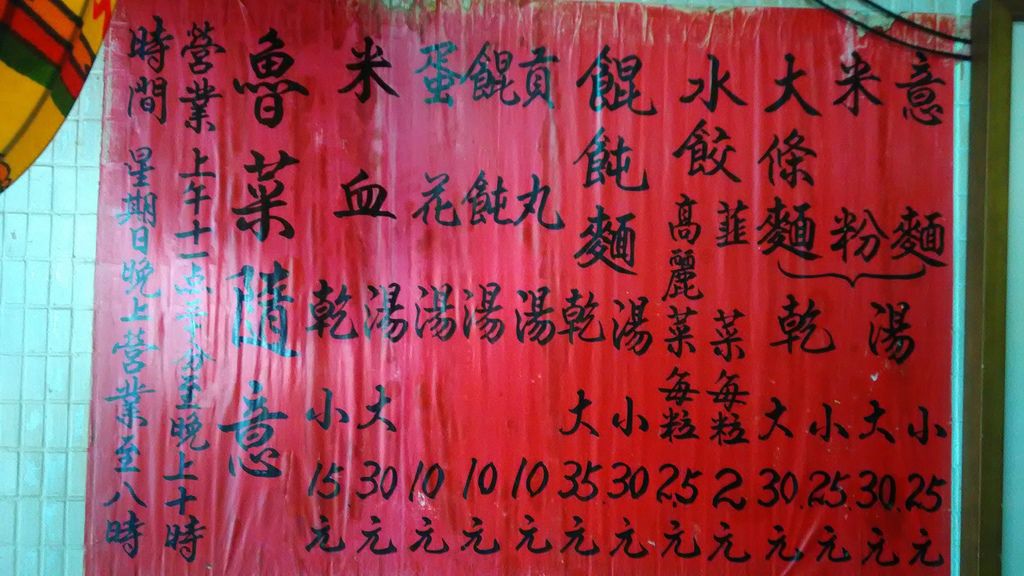 意麵
米粉
大條麵
湯 小 25元
大 30元
乾 小 25元
大 30元
水餃
韮菜 每粒 2元
高麗菜 每粒 2.5元
餛飩麵
湯 小 30元
乾 大 35元
貢丸湯 10元
餛飩湯 10元
蛋花湯 10元
米血
湯 大 30元
乾 小 15元
魯菜隨意
營業 上午十一点三十分至晚上十時
時間 星期日晚上營業至八時